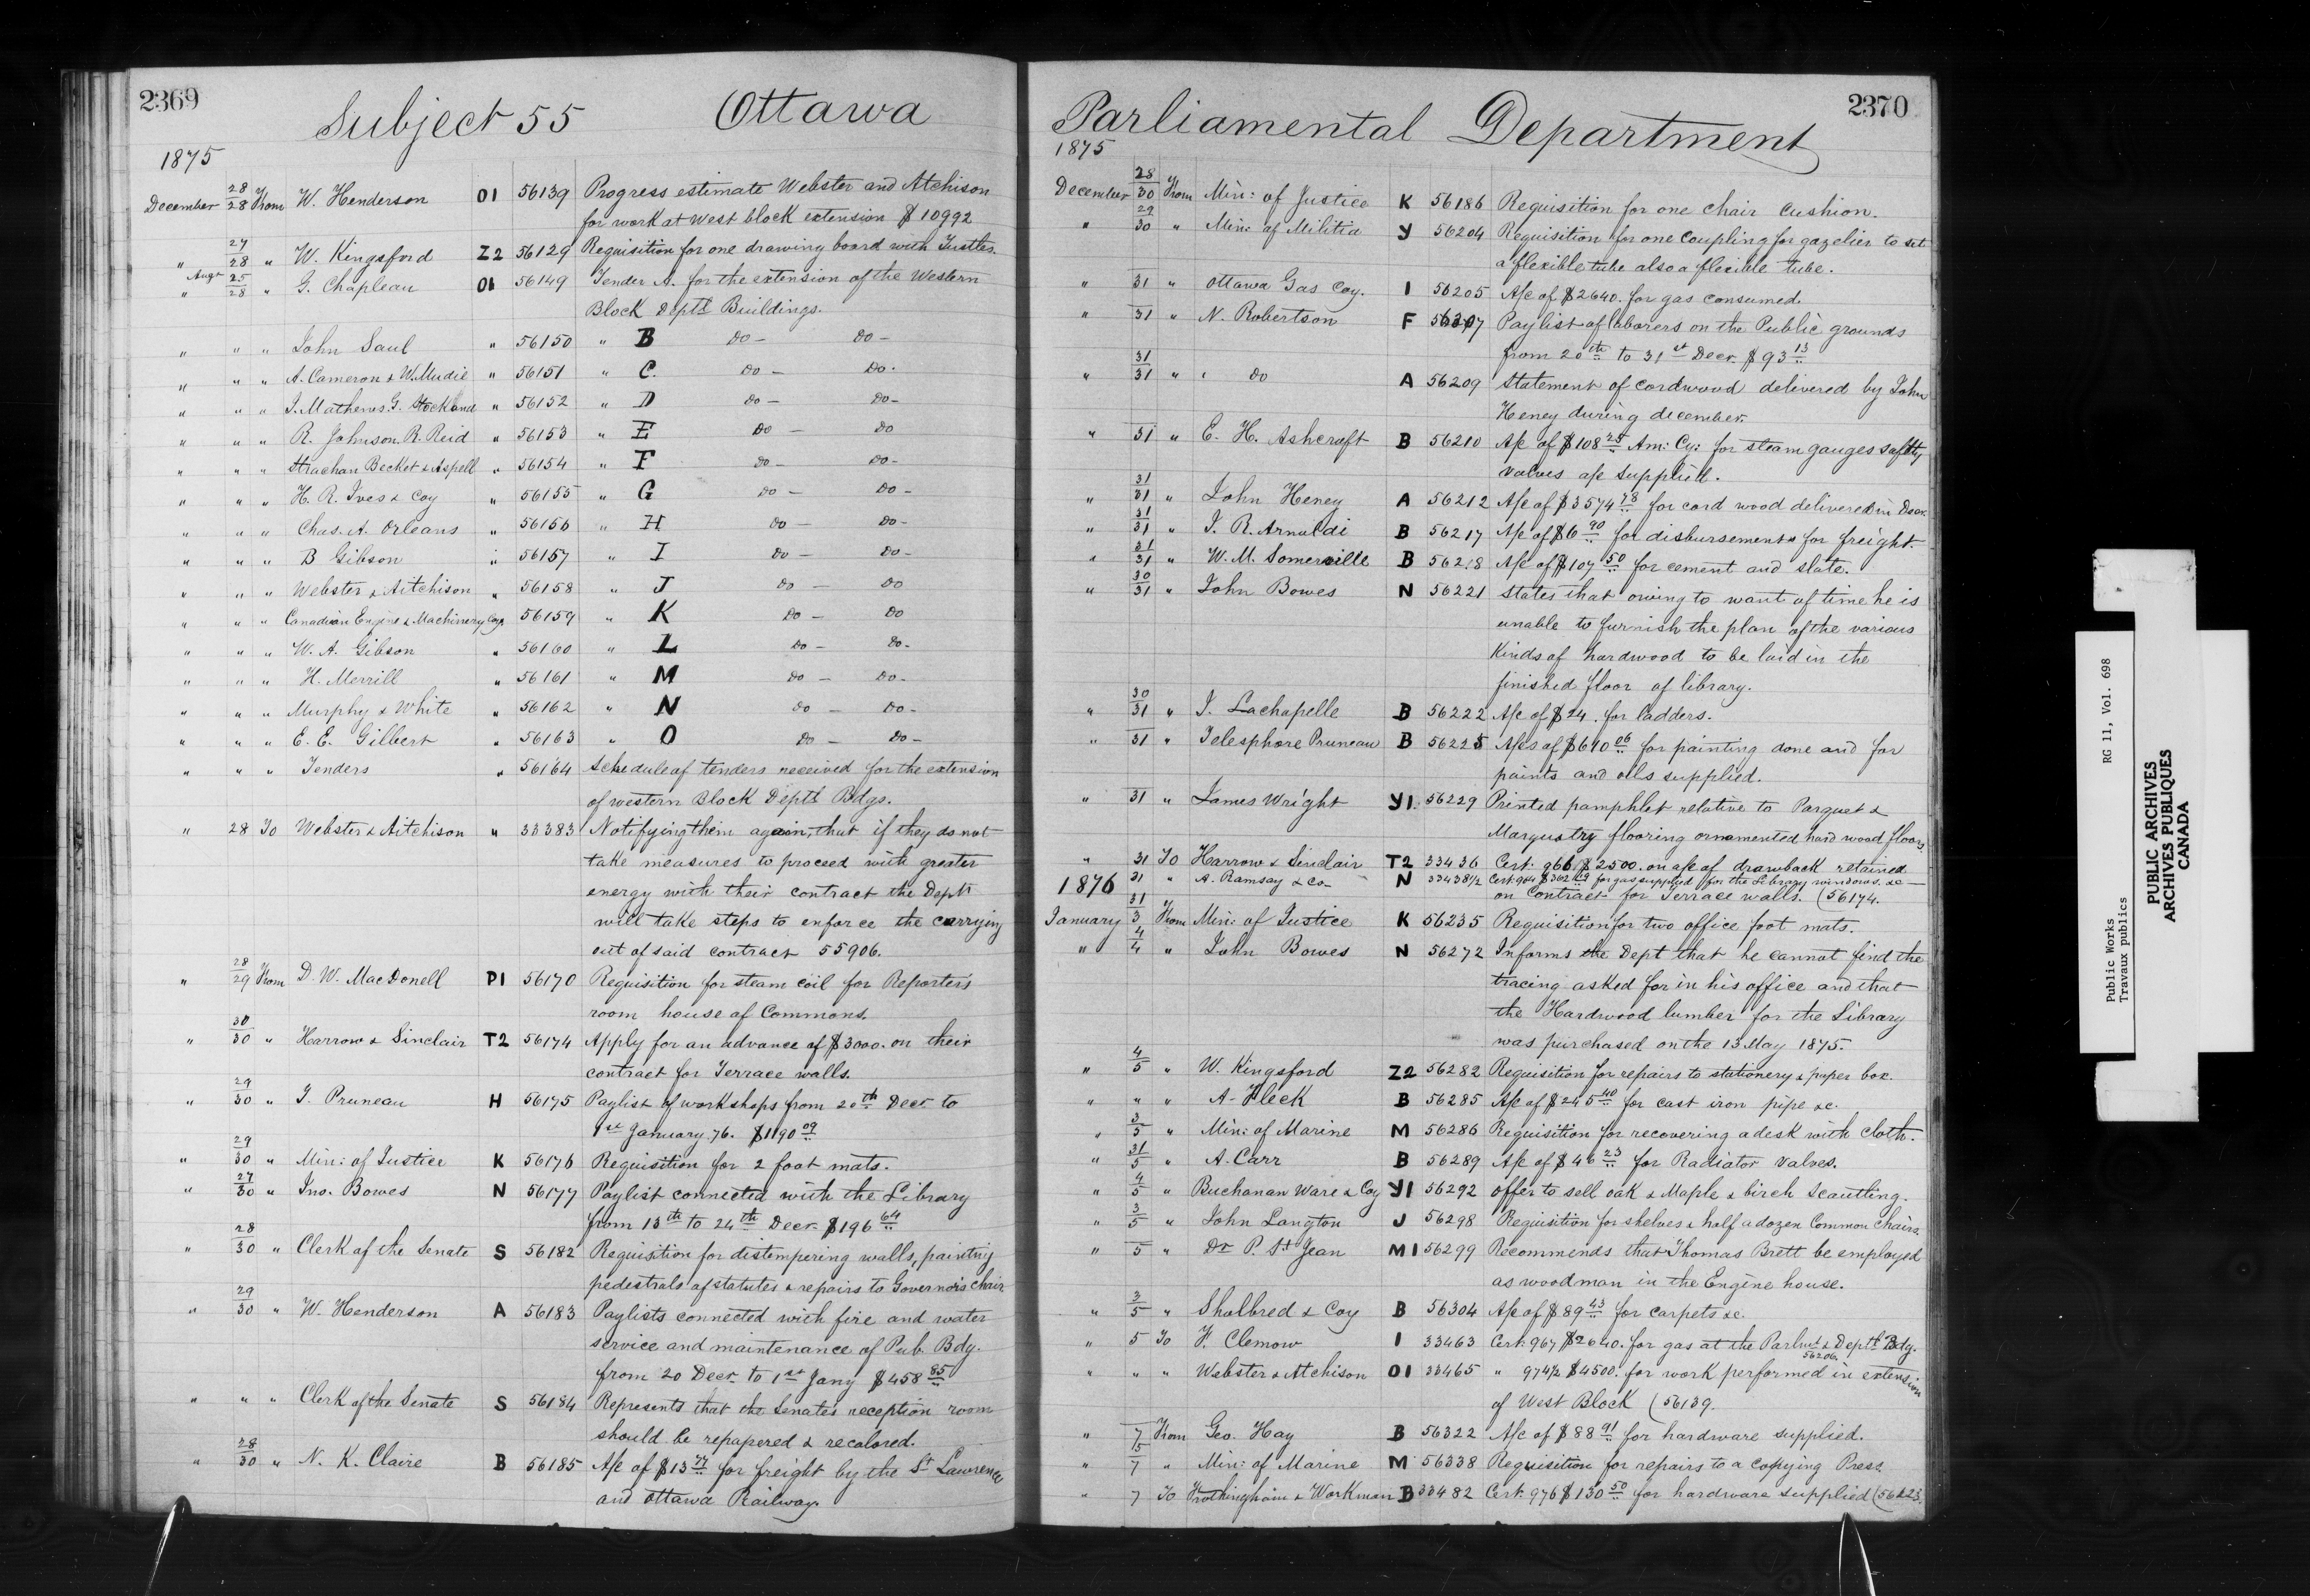 2369
Subject 55 Ottawa
1875
December 28/28 From W. Henderson O1 56139 Progress estimate Webster and Atchison
for work at West block extension $10992
" 27/28 " W. Kingsford Z2 56129 Requisition for one drawing board with Trustles.
" Augt 25/28 " G. Chapleau O1 56149 Tender A. for the extension of the Western
Block Deptl Buildings.
" " " John Saul " 56150 " B Do - Do -
" " " A. Cameron & W. Mudie " 56151 " C. Do - Do.
" " " J. Mathews G. Stockand " 56152 " D Do - Do -
" " " R. Johnson R. Reid " 56153 " E Do - Do
" " " Strachan Becket & Aspell " 56154 " F Do - Do -
" " " H. R. Ives & Coy " 56155 " G Do - Do -
" " " Chas. A. Orleans " 56156 " H Do - Do -
" " " B Gibson " 56157 " I Do - Do -
" " " Webster & Aitchison " 56158 " J Do - Do
" " " Canadian Engine & Machinery Coy. 56159 " K Do - Do
" " " W. A. Gibson " 56160 " L Do - Do -
" " " H. Merrill " 56161 " M Do - Do -
" " " Murphy & White " 56162 " N Do - Do -
" " " E. E. Gilbert " 56163 " O Do - Do -
" " " Tenders " 56164 Schedule of tenders received for the extension
of western Block Deptl Bdgs.
" 28 To Webster & Aitchison " 33383 Notifying them again, that if they do not
take measures to proceed with greater
energy with their contract the Dept
will take steps to enforce the carrying
out of said contract 55906.
" 28/29 From D. W. MacDonell P1 56170 Requisition for steam coil for Reporters
room house of Commons.
" 30/30 " Harrow & Sinclair T2 56174 Apply for an advance of $3000. on their
contract for Terrace walls.
" 29/30 " T. Pruneau H 56175 Paylist of workshops from 20th Decr. to
1st January 76. $1190 09
" 29/30 " Min: of Justice K 56176 Requisition for 2 foot mats.
" 27/30 " Jno. Bowes N 56177 Paylist connected with the Library
from 13th to 24th Decr. $196 64
" 28/30 " Clerk of the Senate S 56182 Requisition for distempering walls, painting
pedestrals of statutes & repairs to Governors Chair
" 29/30 " W. Henderson A 56183 Paylists connected with fire and water
service and maintenance of Pub. Bdg.
from 20 Decr. to 1st Jany $458 85
" " " Clerk of the Senate S 56184 Represents that the Senates reception room
should be repapered & recolored.
" 28/30 " N. K. Claire B 56185 A/c of $13 77 for freight by the St Lawrence
and Ottawa Railway.
2370
Parliamental Department
1875
December 28/30 From Min: of Justice K 56186 Requisition for one chair cushion.
" 29/30 " Min: of Militia Y 56204 Requisition for one coupling for gazelier to set
a flexible tube also a flexible tube.
" 31 " Ottawa Gas Coy. I 56205 A/c of $2640. for gas consumed.
" 31 " N. Robertson F 56207 Paylist of laborers on the Public grounds
from 20th to 31st Decr. $93 13
" 31/31 " " do A 56209 Statement of cordwood delivered by John
Heney during december.
" 31 " E. H. Ashcroft B 56210 A/c of $108 25 Am: Cy: for steam gauges safety
valves a/c supplied.
" 31/31 " John Heney A 56212 A/c of $3574 48 for cord wood delivered in Decr.
" 31/31 " J. R. Arnoldi B 56217 A/c of $6 90 for disbursements for freight.
" 31/31 " W. M. Somerville B 56218 A/c of $107 50 for cement and slate.
" 30/31 " John Bowes N 56221 States that owing to want of time he is
unable to furnish the plan of the various
kinds of hardwood to be laid in the
finished floor of library.
" 30/31 " J. Lachapelle B 56222 A/c of $24. for ladders.
" 31 " Telesphore Pruneau B 56225 A/cs of $610 06 for painting done and for
paints and oils supplied.
" 31 " James Wright Y1 56229 Printed pamphlet relative to Parquet &
Marquetry flooring ornamented hard wood floors
" 31 To Harrow & Sinclair T2 33436 Cert: 966 $2500. on a/c of drawback retained
1876 31 " A. Ramsay & Co - N 33438½ Cert. 964 $362 for gas supplied for the Library windows. &c -
on contract for Terrace walls. (56174.
January 31/3 From Min: of Justice K 56235 Requisition for two office foot mats.
" 4/4 " John Bowes N 56272 Informs the Dept that he cannot find the
tracing asked for in his office and that
the Hardwood lumber for the Library
was purchased on the 13 May 1875.
" 4/5 " W. Kingsford Z2 56282 Requisition for repairs to stationery & paper box.
" " " A. Fleck B 56285 A/c of $245 40 for cast iron pipe &c.
" 3/5 " Min: of Marine M 56286 Requisition for recovering a desk with cloth.
" 31/5 " A. Carr B 56289 A/c of $46 23 for Radiator valves.
" 4/5 " Buchanan Ware & Coy Y1 56292 Offer to sell oak & Maple & birch Scautling.
" 3/5 " John Langton J 56298 Requisition for shelves & half a dozen Common chairs.
" 5 " Dr P. St Jean M1 56299 Recommends that Thomas Brett be employed
as woodman in the Engine house.
" 3/5 " Shoolbred & Coy B 56304 A/c of $89 43 for carpets &c.
" 5 To F. Clemow I 33463 Cert: 967 $2640. for gas at the Parlmt & Deptl Bdg.
56206
" " " Webster & Atchison O1 33465 " 974½ $4500. for work performed in extension
of West Block (56139.
" 7 From Geo. Hay B 56322 A/c of $88 91 for hardware supplied.
" 5/7 " Min: of Marine M 56338 Requisition for repairs to a copying Press.
" 7 To Frothingham & Workman B 33482 Cert: 976 $130 50 for hardware supplied (56223.
Public Works RG 11, Vol. 698
Travaux publics
PUBLIC ARCHIVES
ARCHIVES PUBLIQUES
CANADA